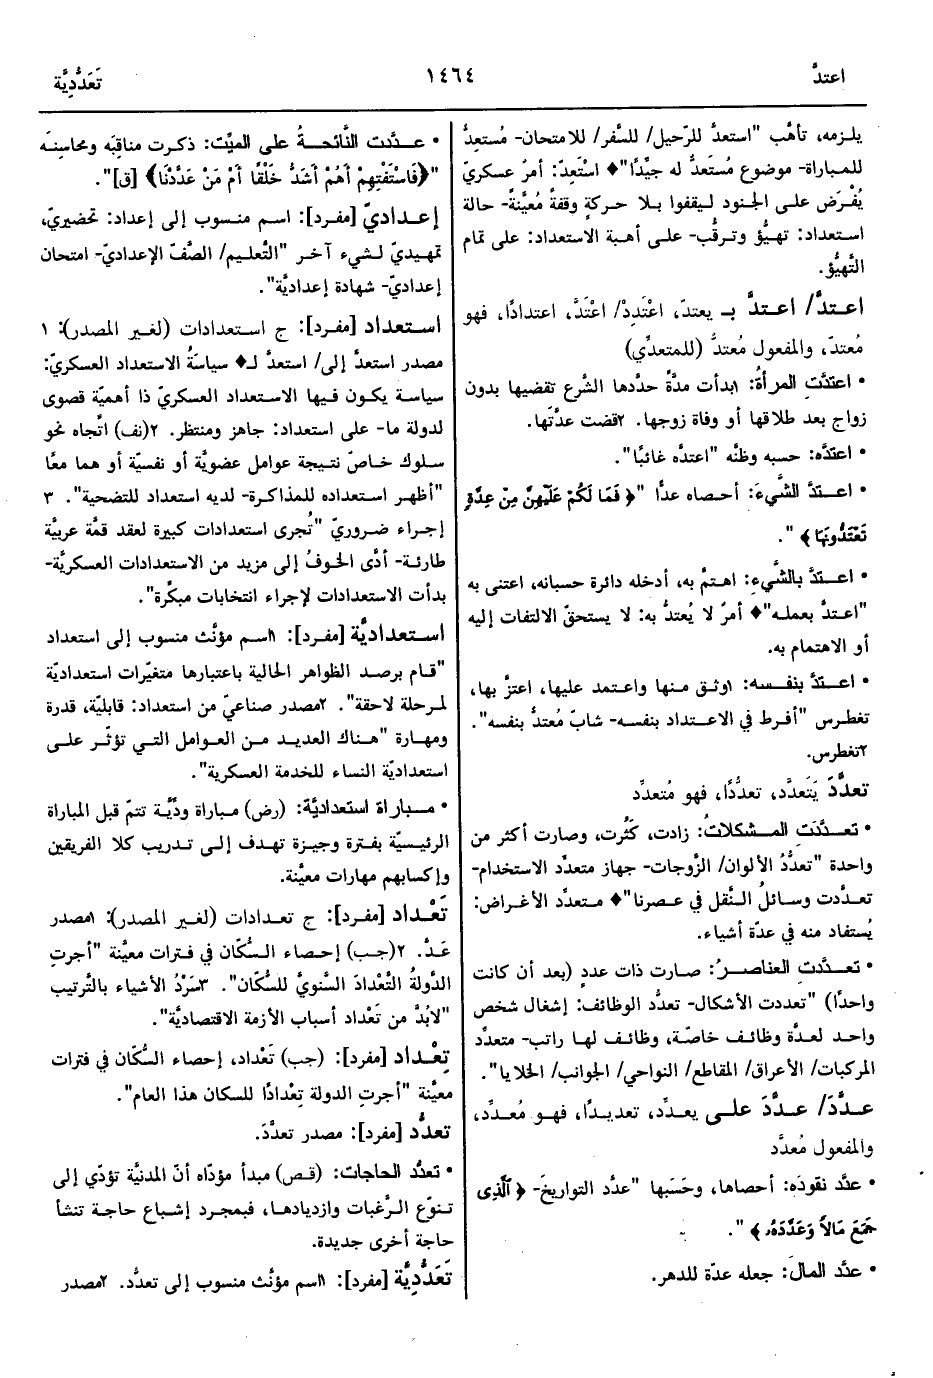 اعتدَّ
١٤٦٤
تَعَدُّدِيَّة
يلزمه، تأهَّب "استعدَّ للرّحيل/ للسَّفر/ للامتحان- مُستعِدٌّ
للمباراة- موضوع مُستَعدٌّ له جيِّدًا"♦ استَعِدّ: أمرٌ عسكريّ
يُفْرَض على الجنود ليقفوا بلا حركةٍ وقفةً مُعيَّنة- حالة
استعداد: تهيُّؤ وترقُّب- على أهبة الاستعداد: على تمام
التَّهيُّؤ.
اعتدَّ/ اعتدَّ بـ يعتدّ، اعْتَدِدْ/ اعْتَدَّ، اعتدادًا، فهو
مُعتدّ، والمفعول مُعتدٌّ (للمتعدِّي)
• اعتدَّت المرأةُ: ١بدأت مدَّةً حدَّدها الشَّرع تقضيها بدون
زواج بعد طلاقها أو وفاة زوجها. ٢قضت عدَّتَها.
• اعتدَّه: حسبه وظنَّه "اعتدَّه غائبًا".
• اعتدَّ الشَّيءَ: أحصاه عدًّا "﴿ فَمَا لَكُمْ عَلَيْهِنَّ مِنْ عِدَّةٍ
تَعْتَدُّونَهَا ﴾ ".
• اعتدَّ بالشَّيءِ: اهتمَّ به، أدخله دائرة حسبانه، اعتنى به
"اعتدَّ بعمله"♦ أمرٌ لا يُعتدُّ به: لا يستحقّ الالتفات إليه
أو الاهتمام به.
• اعتدَّ بنفسه: ١وثق منها واعتمد عليها، اعتزَّ بها،
تغطرس "أفرط في الاعتداد بنفسه- شابّ مُعتدٌّ بنفسه".
٢تغطرس.
تعدَّدَ يَتَعدَّد، تعدُّدًا، فهو مُتعدِّد
• تعدَّدَت المشكلاتُ: زادت، كَثُرت، وصارت أكثر من
واحدة "تعدُّدُ الألوان/ الزَّوجات- جهاز متعدِّد الاستخدام-
تعدَّدت وسائلُ النَّقل في عصرنا"♦ متعدِّد الأغراض:
يُستفاد منه في عدّة أشياء.
• تعدَّدت العناصرُ: صارت ذات عددٍ (بعد أن كانت
واحدًا) "تعددت الأشكال- تعدُّد الوظائف: إشغال شخص
واحد لعدَّة وظائف خاصّة، وظائف لها راتب- متعدِّد
المركبات/ الأعراق/ المقاطع/ النواحي/ الجوانب/ الخلايا".
عدَّدَ/ عدَّدَ على يعدِّد، تعديدًا، فهو مُعدِّد،
والمفعول مُعدَّد
• عدَّد نقودَه: أحصاها، وحَسَبها "عدَّد التواريخَ- ﴿ الَّذِى
جَمَعَ مَالاً وَعَدَّدَهُ ﴾ ".
• عدَّد المالَ: جعله عدّة للدهر.
• عدَّدت النَّائحةُ على الميِّت: ذكرت مناقبَه ومحاسِنَه
"﴿فَاسْتَفْتِهِمْ أَهُمْ أَشَدُّ خَلْقًا أَمْ مَنْ عَدَّدْنَا﴾ [ق]".
إعداديّ [مفرد]: اسم منسوب إلى إعداد: تحضيريّ،
تمهيديّ لشيء آخر "التَّعليم/ الصَّفّ الإعداديّ- امتحان
إعداديّ- شهادة إعداديَّة".
استعداد [مفرد]: ج استعدادات (لغير المصدر): ١
مصدر استعدَّ إلى/ استعدَّ لـ♦ سياسةُ الاستعداد العسكريّ:
سياسة يكون فيها الاستعداد العسكريّ ذا أهميّة قصوى
لدولة ما- على استعداد: جاهز ومنتظر. ٢(نف) اتِّجاه نحو
سلوك خاصّ نتيجة عوامل عضويَّة أو نفسيّة أو هما معًا
"أظهر استعداده للمذاكرة- لديه استعداد للتضحية". ٣
إجراء ضروريّ "تُجرى استعدادات كبيرة لعقد قمَّة عربيَّة
طارئة- أدَّى الخوفُ إلى مزيد من الاستعدادات العسكريَّة-
بدأت الاستعدادات لإجراء انتخابات مبكِّرة".
استعداديَّة [مفرد]: ١اسم مؤنَّث منسوب إلى استعداد
"قام برصد الظواهر الحالية باعتبارها متغيّرات استعداديّة
لمرحلة لاحقة". ٢مصدر صناعيّ من استعداد: قابليّة، قدرة
ومهارة "هناك العديد من العوامل التي تؤثّر على
استعداديّة النساء للخدمة العسكرية".
• مباراة استعداديَّة: (رض) مباراة ودِّيَّة تتمّ قبل المباراة
الرئيسيّة بفترة وجيزة تهدف إلى تدريب كلا الفريقين
وإكسابهم مهارات معيَّنة.
تَعْداد [مفرد]: ج تعدادات (لغير المصدر): ١مصدر
عَدَّ. ٢(جب) إحصاء السُّكّان في فترات معيَّنة "أجرتِ
الدَّولةُ التَّعْدادَ السَّنويَّ للسُّكّان". ٣سَرْدُ الأشياء بالتَّرتيب
"لابُدَّ من تَعْداد أسباب الأزمة الاقتصاديَّة".
تِعْداد [مفرد]: (جب) تَعْداد، إحصاء السُّكّان في فترات
معيَّنة "أجرتِ الدولة تِعْدادًا للسكان هذا العام".
تعدُّد [مفرد]: مصدر تعدَّدَ.
• تعدُّد الحاجات: (قص) مبدأ مؤدّاه أنّ المدنيَّة تؤدّي إلى
تنوّع الرَّغبات وازديادها، فبمجرد إشباع حاجة تنشأ
حاجة أخرى جديدة.
تَعَدُّدِيَّة [مفرد]: ١اسم مؤنَّث منسوب إلى تعدُّد. ٢مصدر